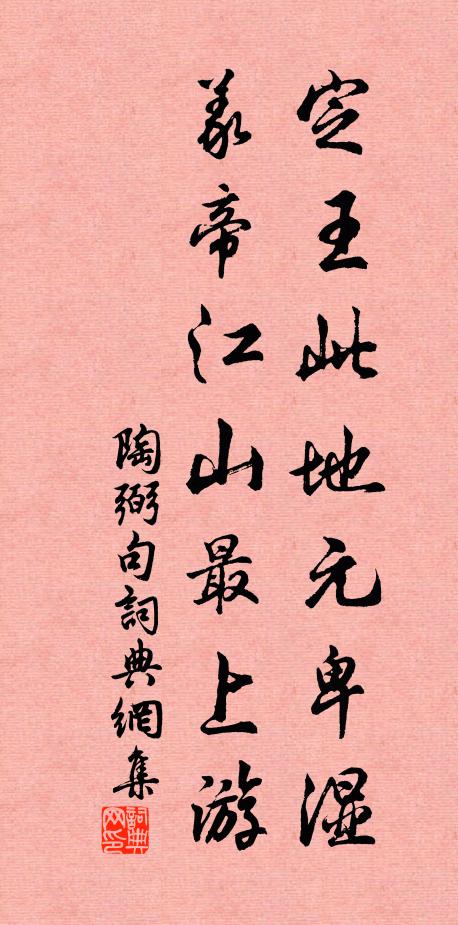 定王此地元卑湿
义帝江山最上游
陶弼句詞典網集
詞典网印